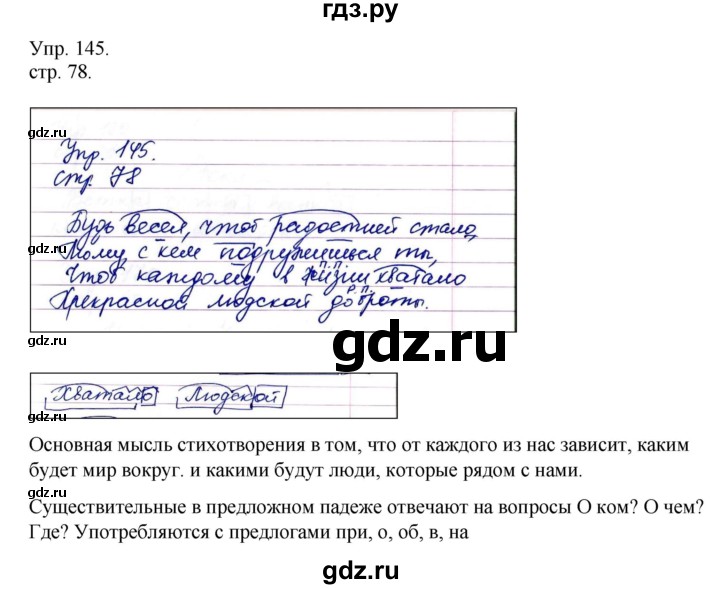 гдз.ру
Упр. 145.
стр. 78.
gdz.ru
Упр. 145.
стр 78
gdz.ru
Будь весел, чтоб радостней стало,
Тому, с кем подружишься ты,
gdz.ru
Чтоб каждому в жизни хватало
п.п.
Прекрасной людской доброты.
р.п.
gdz.ru
gdz.ru
Хватало Людской
gdz.ru
Основная мысль стихотворения в том, что от каждого из нас зависит, каким
будет мир вокруг. и какими будут люди, которые рядом с нами.
gdz.ru
Существительные в предложном падеже отвечают на вопросы О ком? О чем?
Где? Употребляются с предлогами при, о, об, в, на
gdz.ru
gdz.ru